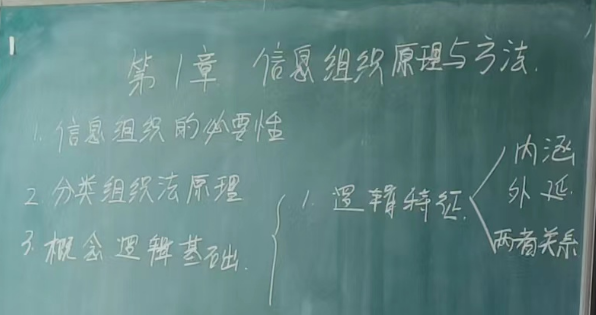 第1章 信息组织原理与方法.
1. 信息组织的必要性
2 分类组织法原理
3. 概念逻辑基础.
1. 逻辑特征.
内涵
外延
两者关系